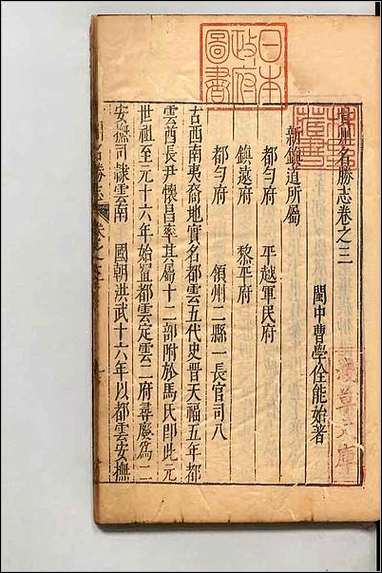 日本
政府
圖書
貴州名勝志卷之三
閩中曹學佺能始著
新鎮道所屬
都勻府　平越軍民府
鎮遠府　黎平府
都勻府　領州二縣一長官司八
古西南夷裔地實名都雲五代史晉天福五年都
雲酋長尹懷昌率其屬十二部附於馬氏即此元
世祖至元十六年始置都雲定雲二府尋廢為二
安撫司隸雲南　國朝洪武十六年以都雲安撫
淺草文庫